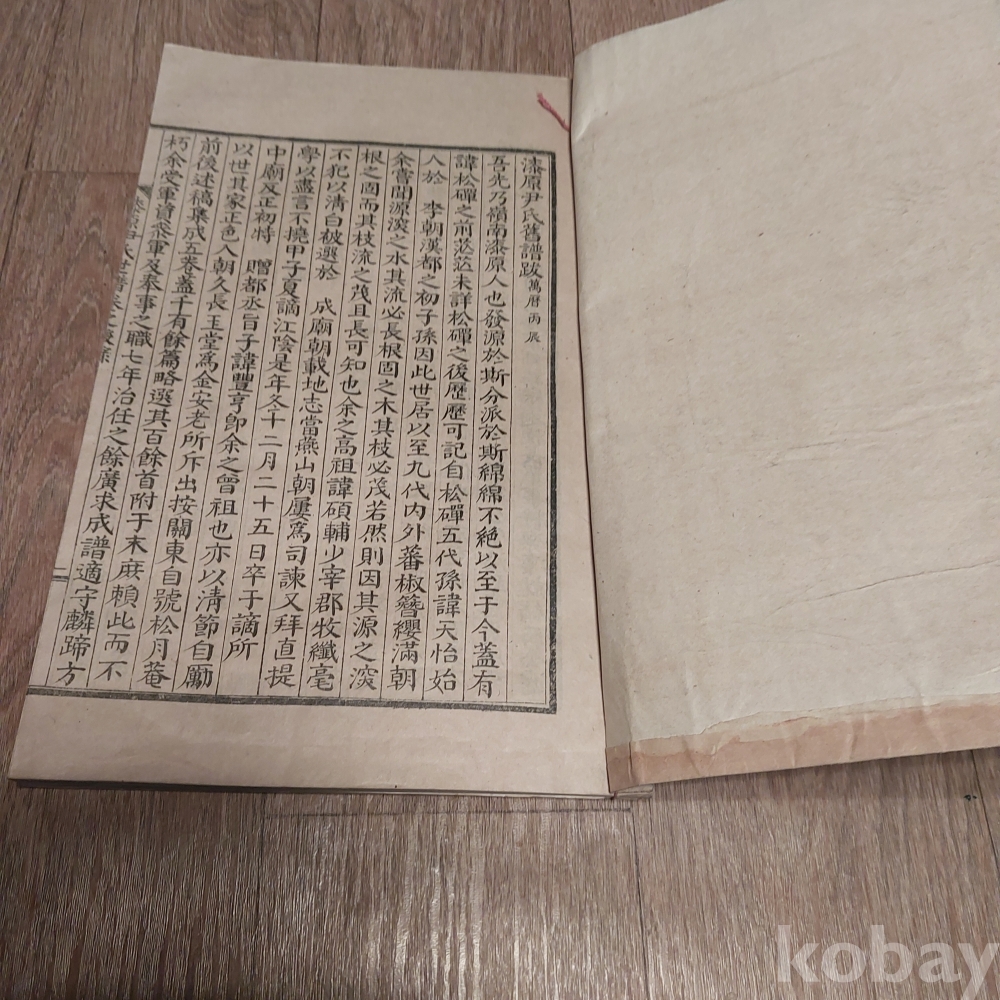 漆原尹氏舊譜跋 萬曆丙辰
吾先乃嶺南漆原人也發源於斯分派於斯綿綿不絶以至于今盖有
諱松磾之前茫茫未詳松磾之後歷歷可記自松磾五代孫諱天怡始
入於 李朝漢都之初子孫因此世居以至九代內外蕃椒簪纓滿朝
余嘗聞源深之水其流必長根固之木其枝必茂若然則因其源之深
根之固而其枝流之茂且長可知也余之高祖諱碩輔少宰郡牧纖毫
不犯以淸白被選於 成廟朝載地志當燕山朝屢爲司諫又拜直提
學以盡言不撓甲子夏謫江陰是年冬十二月二十五日卒于謫所
中廟反正初特 贈都丞旨子諱豐亨卽余之曾祖也亦以淸節自勵
以世其家正色入朝久長玉堂爲金安老所斥出按關東自號松月菴
前後述稿集成五卷盖千有餘篇略選其百餘首附于末庶賴此而不
朽余受軍資叅軍及奉事之職七年治任之餘廣求成譜適守麟蹄方
漆原尹氏世譜卷之
二
kobay